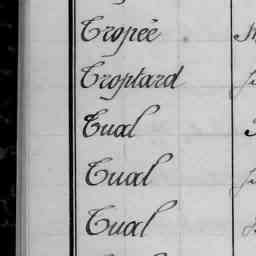 Tropée
Troptard
Tual
Tual
Tual